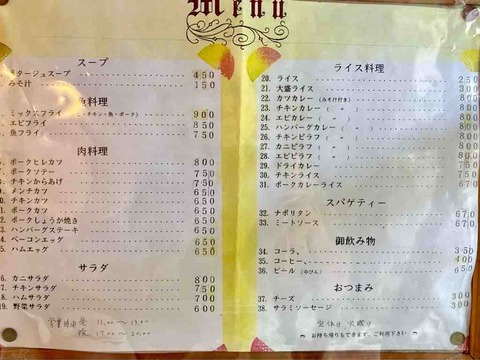 Menu
スープ
タージュスープ 450
みそ汁 150
魚料理
ミックスフライ (チキン・魚・ポーク) 900
エビフライ 850
魚フライ 750
肉料理
ポークヒレカツ 800
ポークソテー 750
チキンからあげ 750
メンチカツ 650
チキンカツ 650
ポークカツ 650
ポークしょうが焼き 650
ハンバーグステーキ 650
ベーコンエッグ 650
ハムエッグ 650
サラダ
6. カニサラダ 800
7. チキンサラダ 750
18. ハムサラダ 700
19. 野菜サラダ 600
営業時間 昼 11.00〜
夜 17.00〜
ライス料理
20. ライス 250
21. 大盛ライス 300
22. カツカレー (みそ汁付き) 800
23. チキンカレー ( 〃 ) 800
24. エビカレー ( 〃 ) 800
25. ハンバーグカレー ( 〃 ) 800
26. チキンピラフ ( 〃 )
27. カニピラフ ( 〃 )
28. エビピラフ ( 〃 )
29. ドライカレー 750
30. チキンライス
31. ポークカレーライス 670
スパゲティー
32. ナポリタン 670
33. ミートソース 670
御飲み物
34. コーラ、 350
35. コーヒー、 400
36. ビール (中びん) 650
おつまみ
37. チーズ 300
38. サラミソーセージ 300
定休日 火曜日
お持ち帰りもできます、ご利用下さい